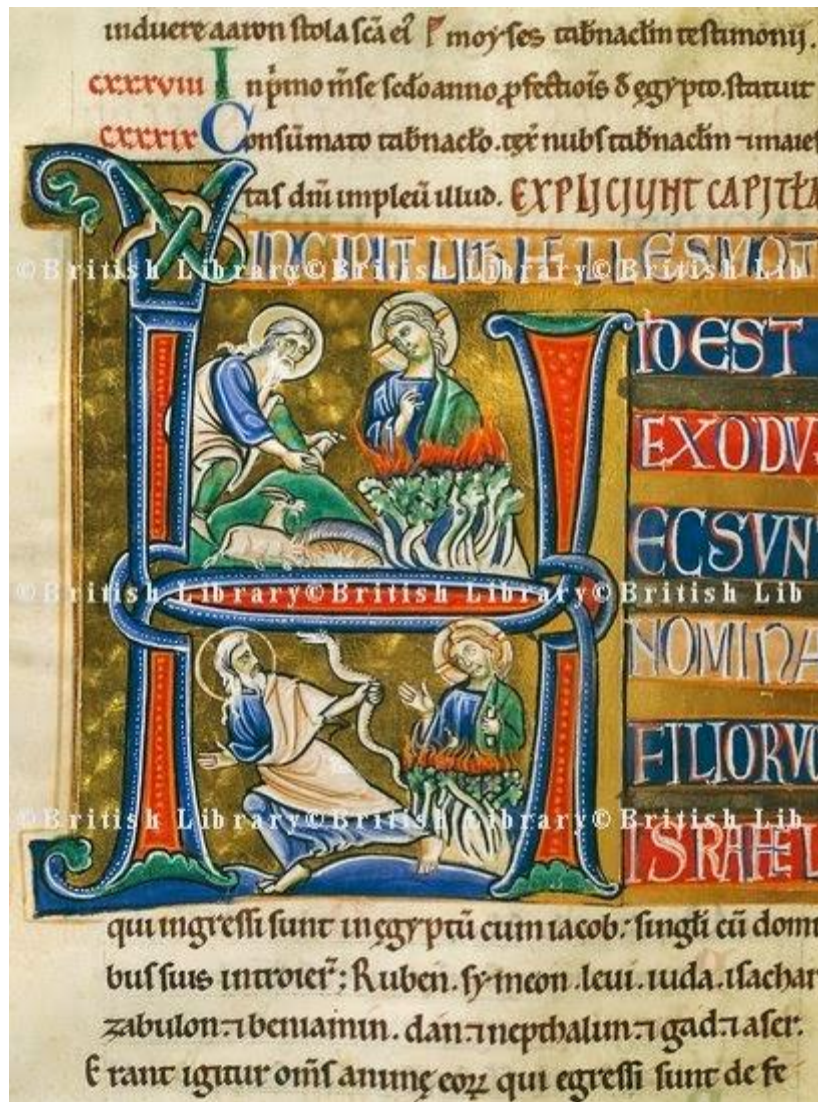 induere aaron stola scã eĩ moyses tabnaclm testimonij.
cxxxviii In pimo mse scdo anno pfectiois đ ęgypto. statuit
cxxxix Consũmato tabnaclo. nubs tabnaclm ⁊ maies
tas dni impleũ illud. EXPLICIUNT CAPITLA
INCIPIT LIB HELLESMOT
©British Library©British Library©British Lib
ID EST
EXODV
ECSVN
©British Library©British Library©British Lib
NOMINA
FILIORV
©British Library©British Library©British Lib
ISRAHEL
qui ingressi sunt in ęgyptũ cum iacob. singli cũ domi
bus suis introier; Ruben. symeon. leui. iuda. isachar
zabulon. ⁊ beniamin. dan. ⁊ nepthalim. ⁊ gad. ⁊ aser.
Erant igitur oms animę eoꝝ qui egressi sunt de fe